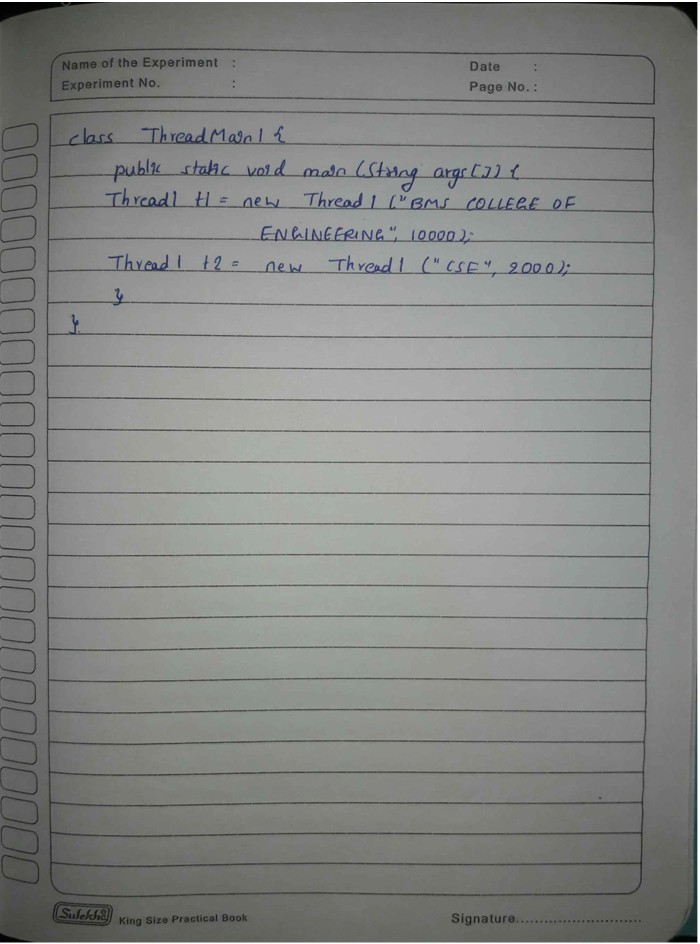 Name of the Experiment :
Date :
Experiment No. :
Page No. :
class ThreadMain1 {
public static void main (String args[]) {
Thread1 t1 = new Thread1 ("BMS COLLEGE OF
ENGINEERING", 10000);
Thread1 t2 = new Thread1 ("CSE", 2000);
}
}
Sulekha King Size Practical Book
Signature............................